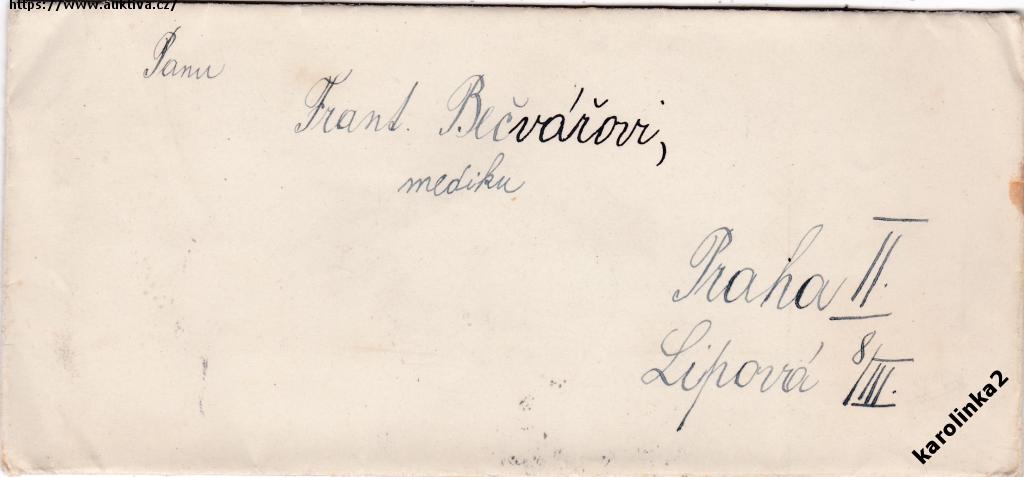 https://www.auktiva.cz/
Panu
Frant. Bečvářovi,
mediku
Praha II.
Lipová 8/III.
karolinka2